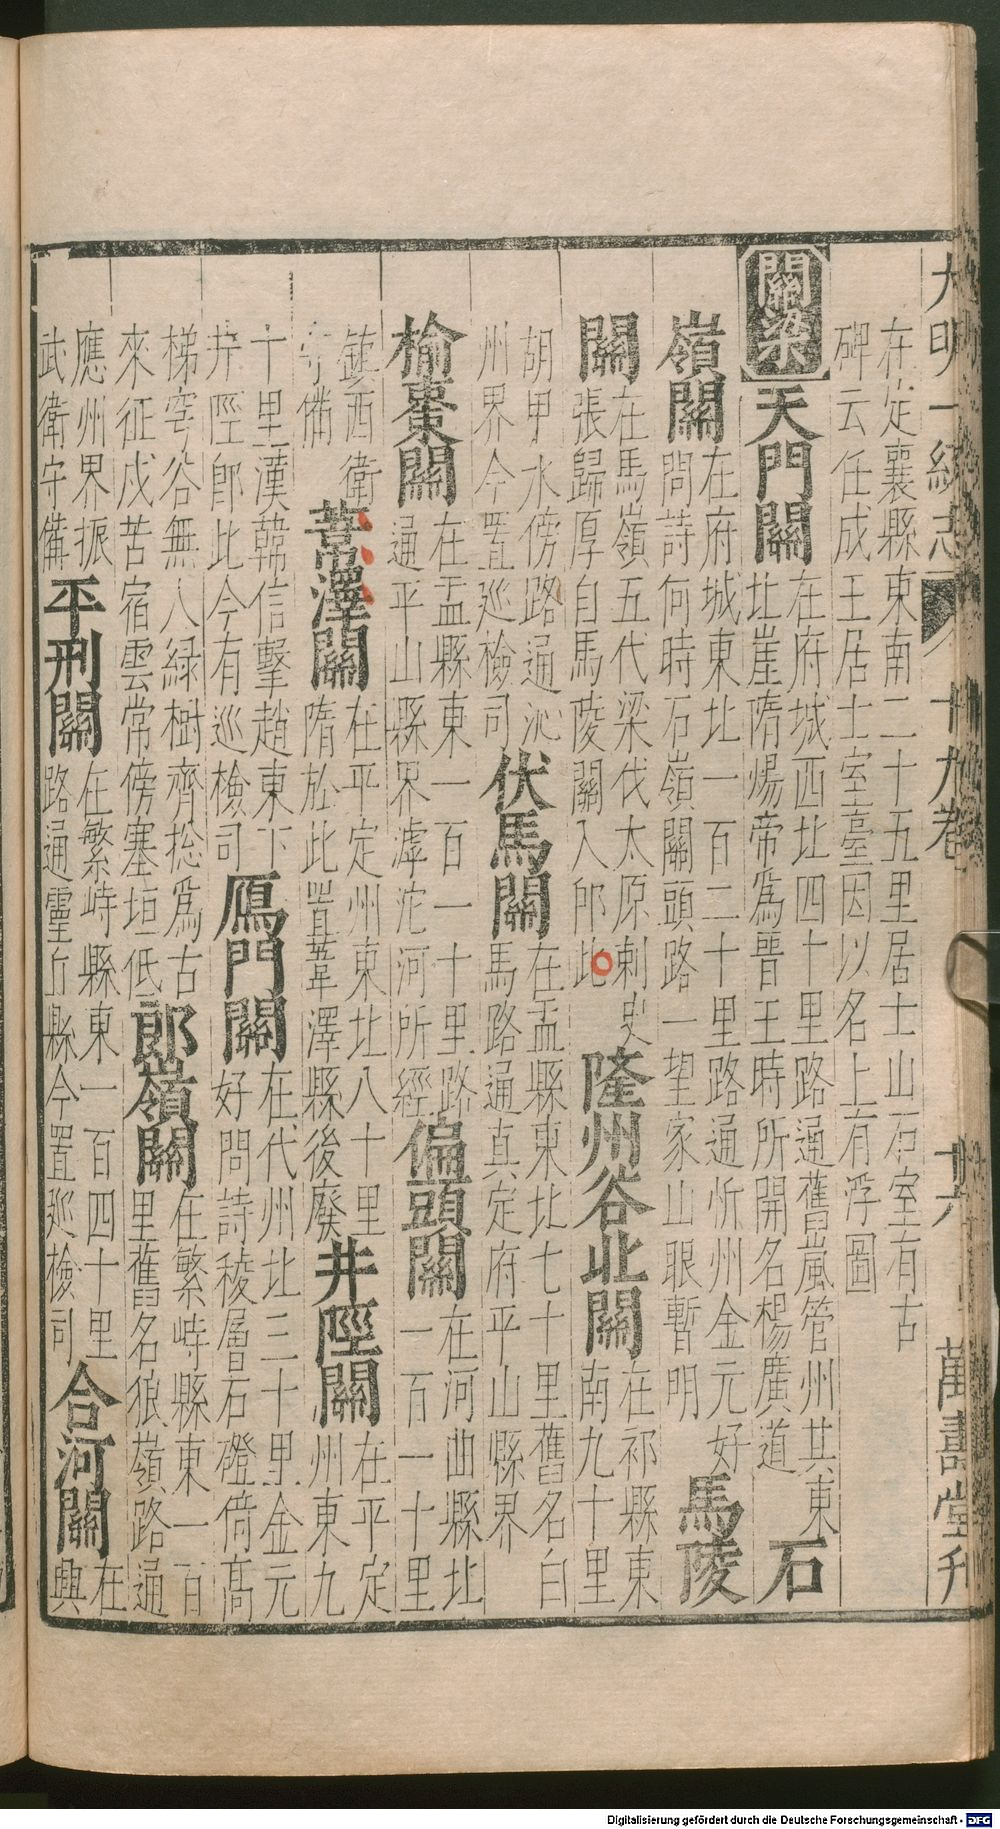 大明一統志 十九卷 十六 萬壽堂刋
在定襄縣東南二十五里居士山石室有古
碑云任成王居士室臺因以名上有浮圖
關梁
天門關
在府城西北四十里路通舊嵐管州其東
北崖隋煬帝為晉王時所開名楊廣道
石
嶺關
在府城東北一百二十里路通忻州金元好
問詩何時石嶺關頭路一望家山眼暫明
馬陵
關
在馬嶺五代梁伐太原刺史
張歸厚自馬陵關入卽此
隆州谷北關
在祁縣東
南九十里
胡甲水傍路通沁
州界今置巡檢司
伏馬關
在盂縣東北七十里舊名白
馬路通真定府平山縣界
榆棗關
在盂縣東一百一十里路
通平山縣界滹沱河所經
偏頭關
在河曲縣北
一百一十里
鎮西衛
守備
葦澤關
在平定州東北八十里
隋於此置葦澤縣後廢
井陘關
在平定
州東九
十里漢韓信擊趙東下
井陘卽此今有巡檢司
鴈門關
在代州北三十里金元
好問詩稜層石磴倚高
梯穹谷無人綠樹齊総為古
來征戍苦宿雲常傍塞垣低
郎嶺關
在繁峙縣東一百
里舊名狼嶺路通
應州界振
武衛守備
平刑關
在繁峙縣東一百四十里
路通靈丘縣今置巡檢司
合河關
在
興
Digitalisierung gefördert durch die Deutsche Forschungsgemeinschaft - DFG